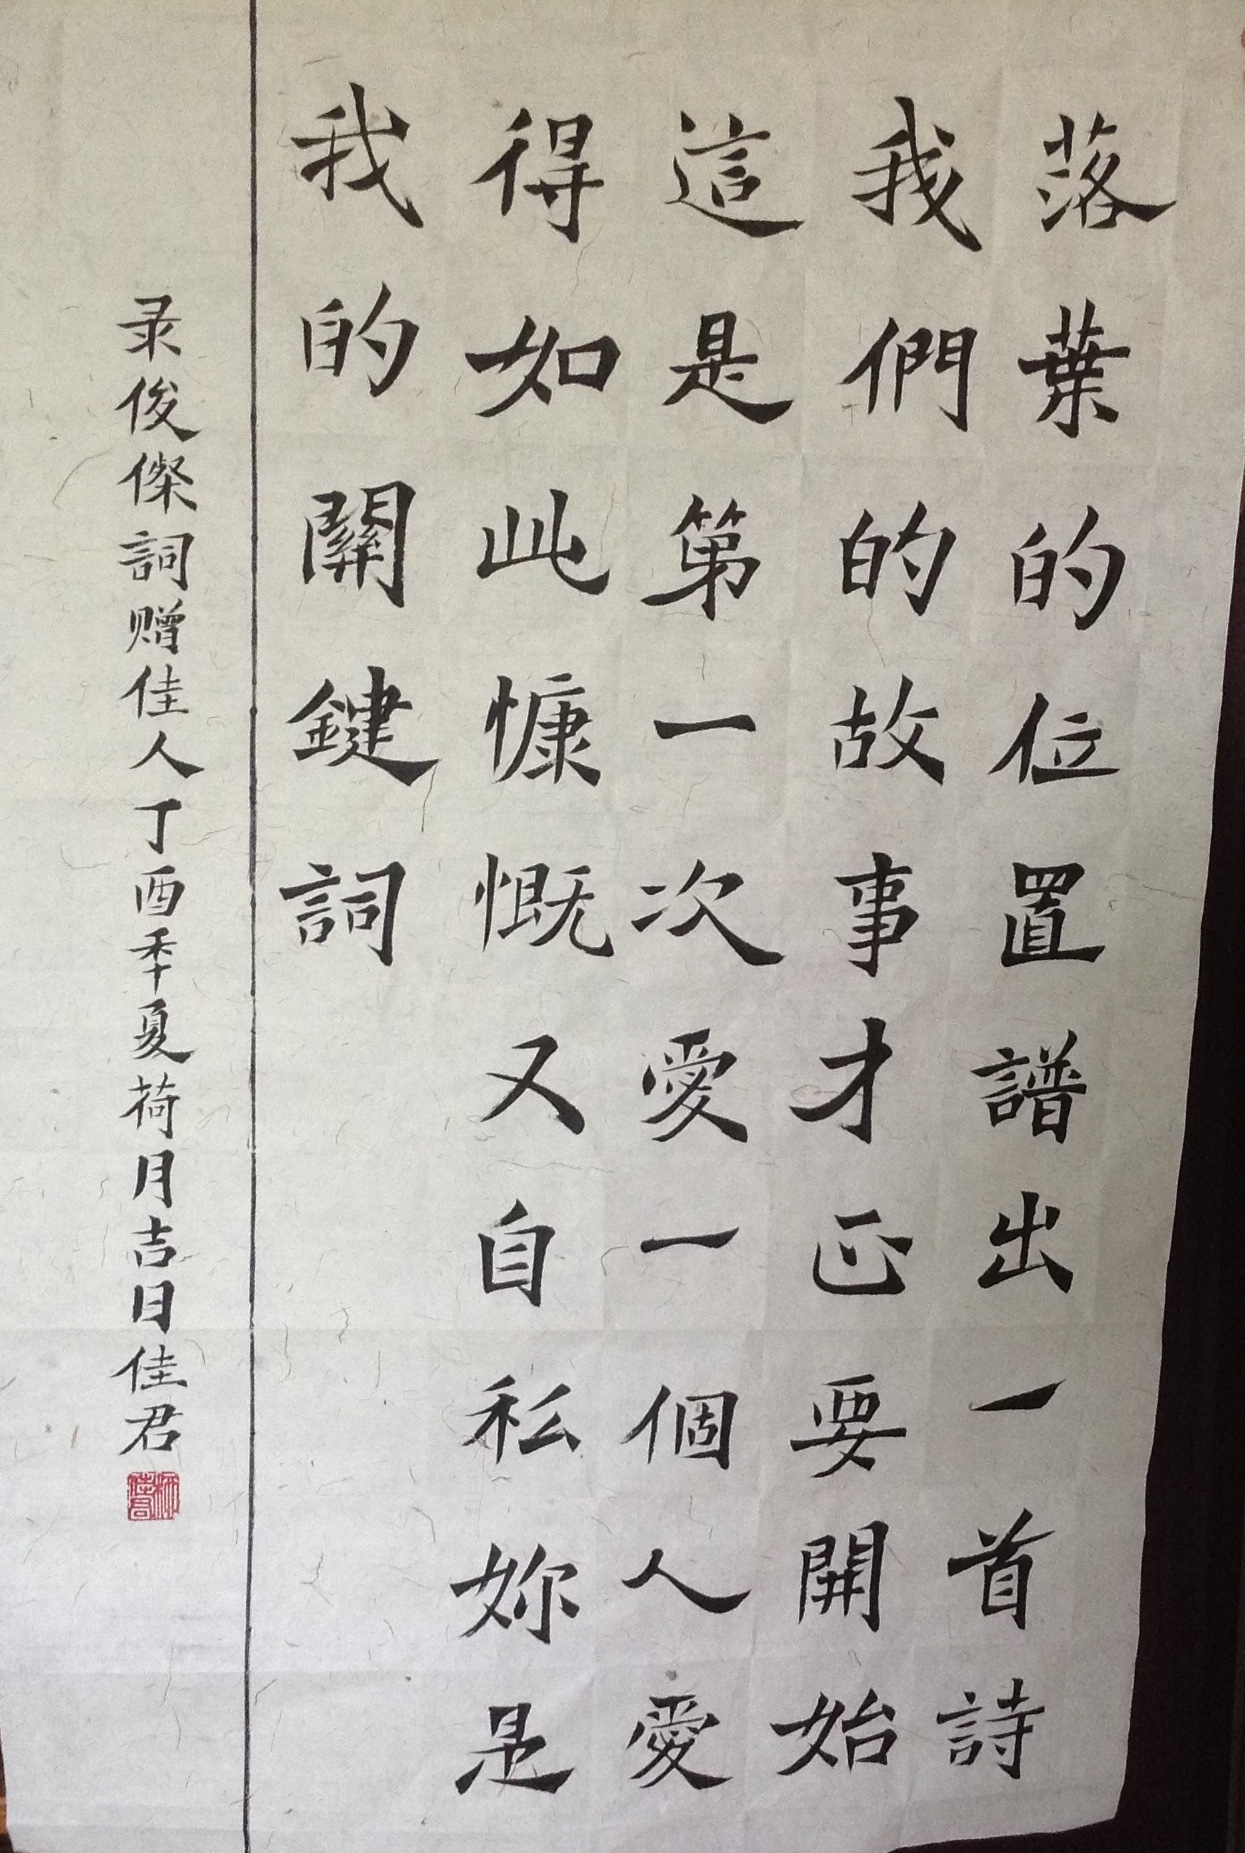 落葉的位置譜出一首詩
我們的故事才正要開始
這是第一次愛一個人愛
得如此慷慨又自私妳是
我的關鍵詞
录俊傑詞赠佳人丁酉季夏荷月吉日佳君